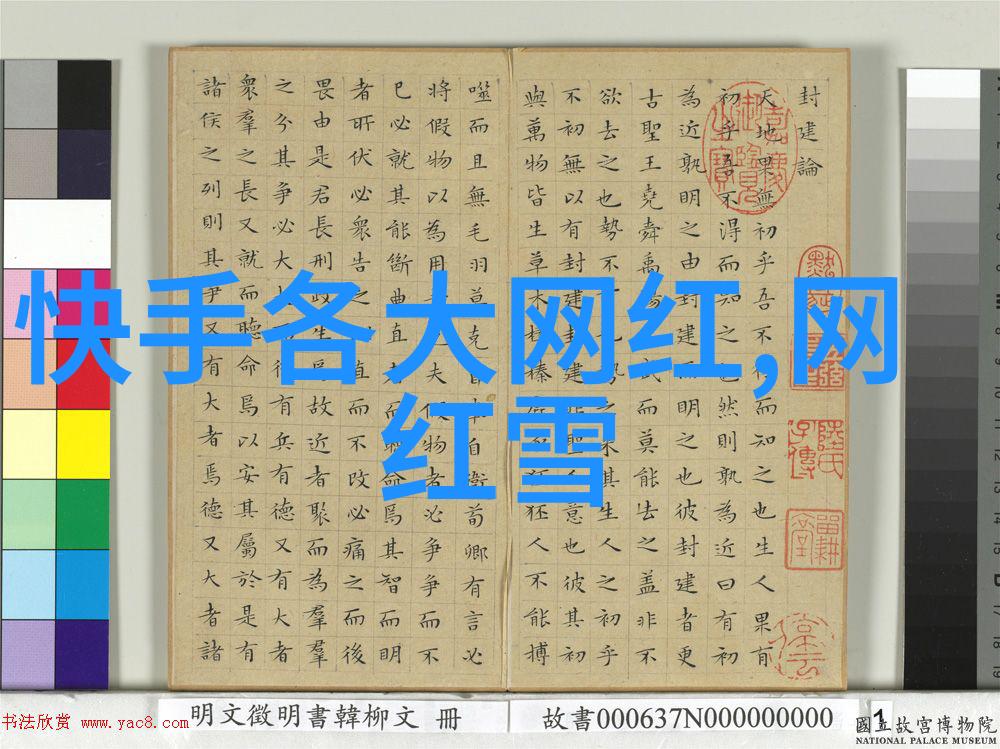 快手各大网红,网
红雪
封建論
天地果無初乎吾不得而知之也生人果有
初乎吾不得而知之也然則孰為近曰有初
為近孰明之由封建而明之也彼封建者更
古聖王堯舜禹湯武而莫能去之蓋非不
欲去之也勢不勢之來其生人之初乎
不初無以有封建封建非聖人意也彼其初
與萬物皆生草木榛榛狉狉人不能搏
噬而且無毛羽莫克自自衛荀卿有言必
將假物以為用夫假物者必爭爭而不
已必就其能斷曲直者而聽命焉其智而明
者所伏必眾告之直而不改必痛之而後
畏由是君長刑政生焉故近者聚而為羣
之分其爭必大後有兵有德又有大者
衆羣之長又就而聽命焉以安其屬於是有
諸侯之列則其爭又有大者焉德又大者諸
嘉慶御覽之寶
書法欣赏 www.yac8.com
明文徵明書韓柳文 冊
故書000637N000000000
1
國立故宮博物院
NATIONAL PALACE MUSEUM